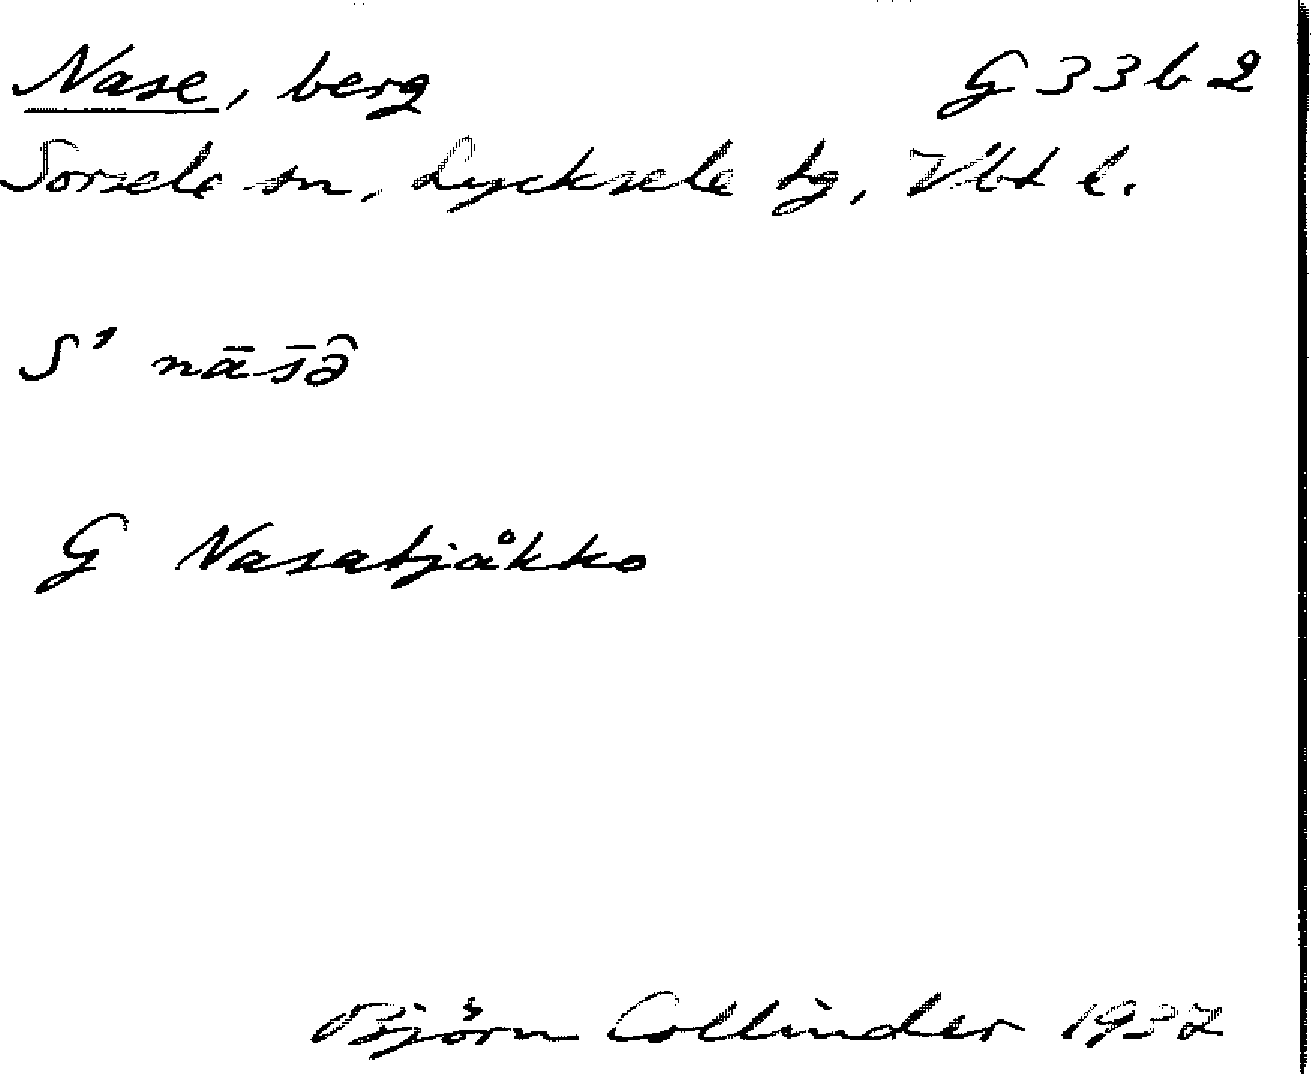 Nase, berg G 33 b 2
Sorsele sn, Lycksele tg, Vbt l.
S' nās̄ə̑
G Nasatjåkko
Björn Collinder 1937